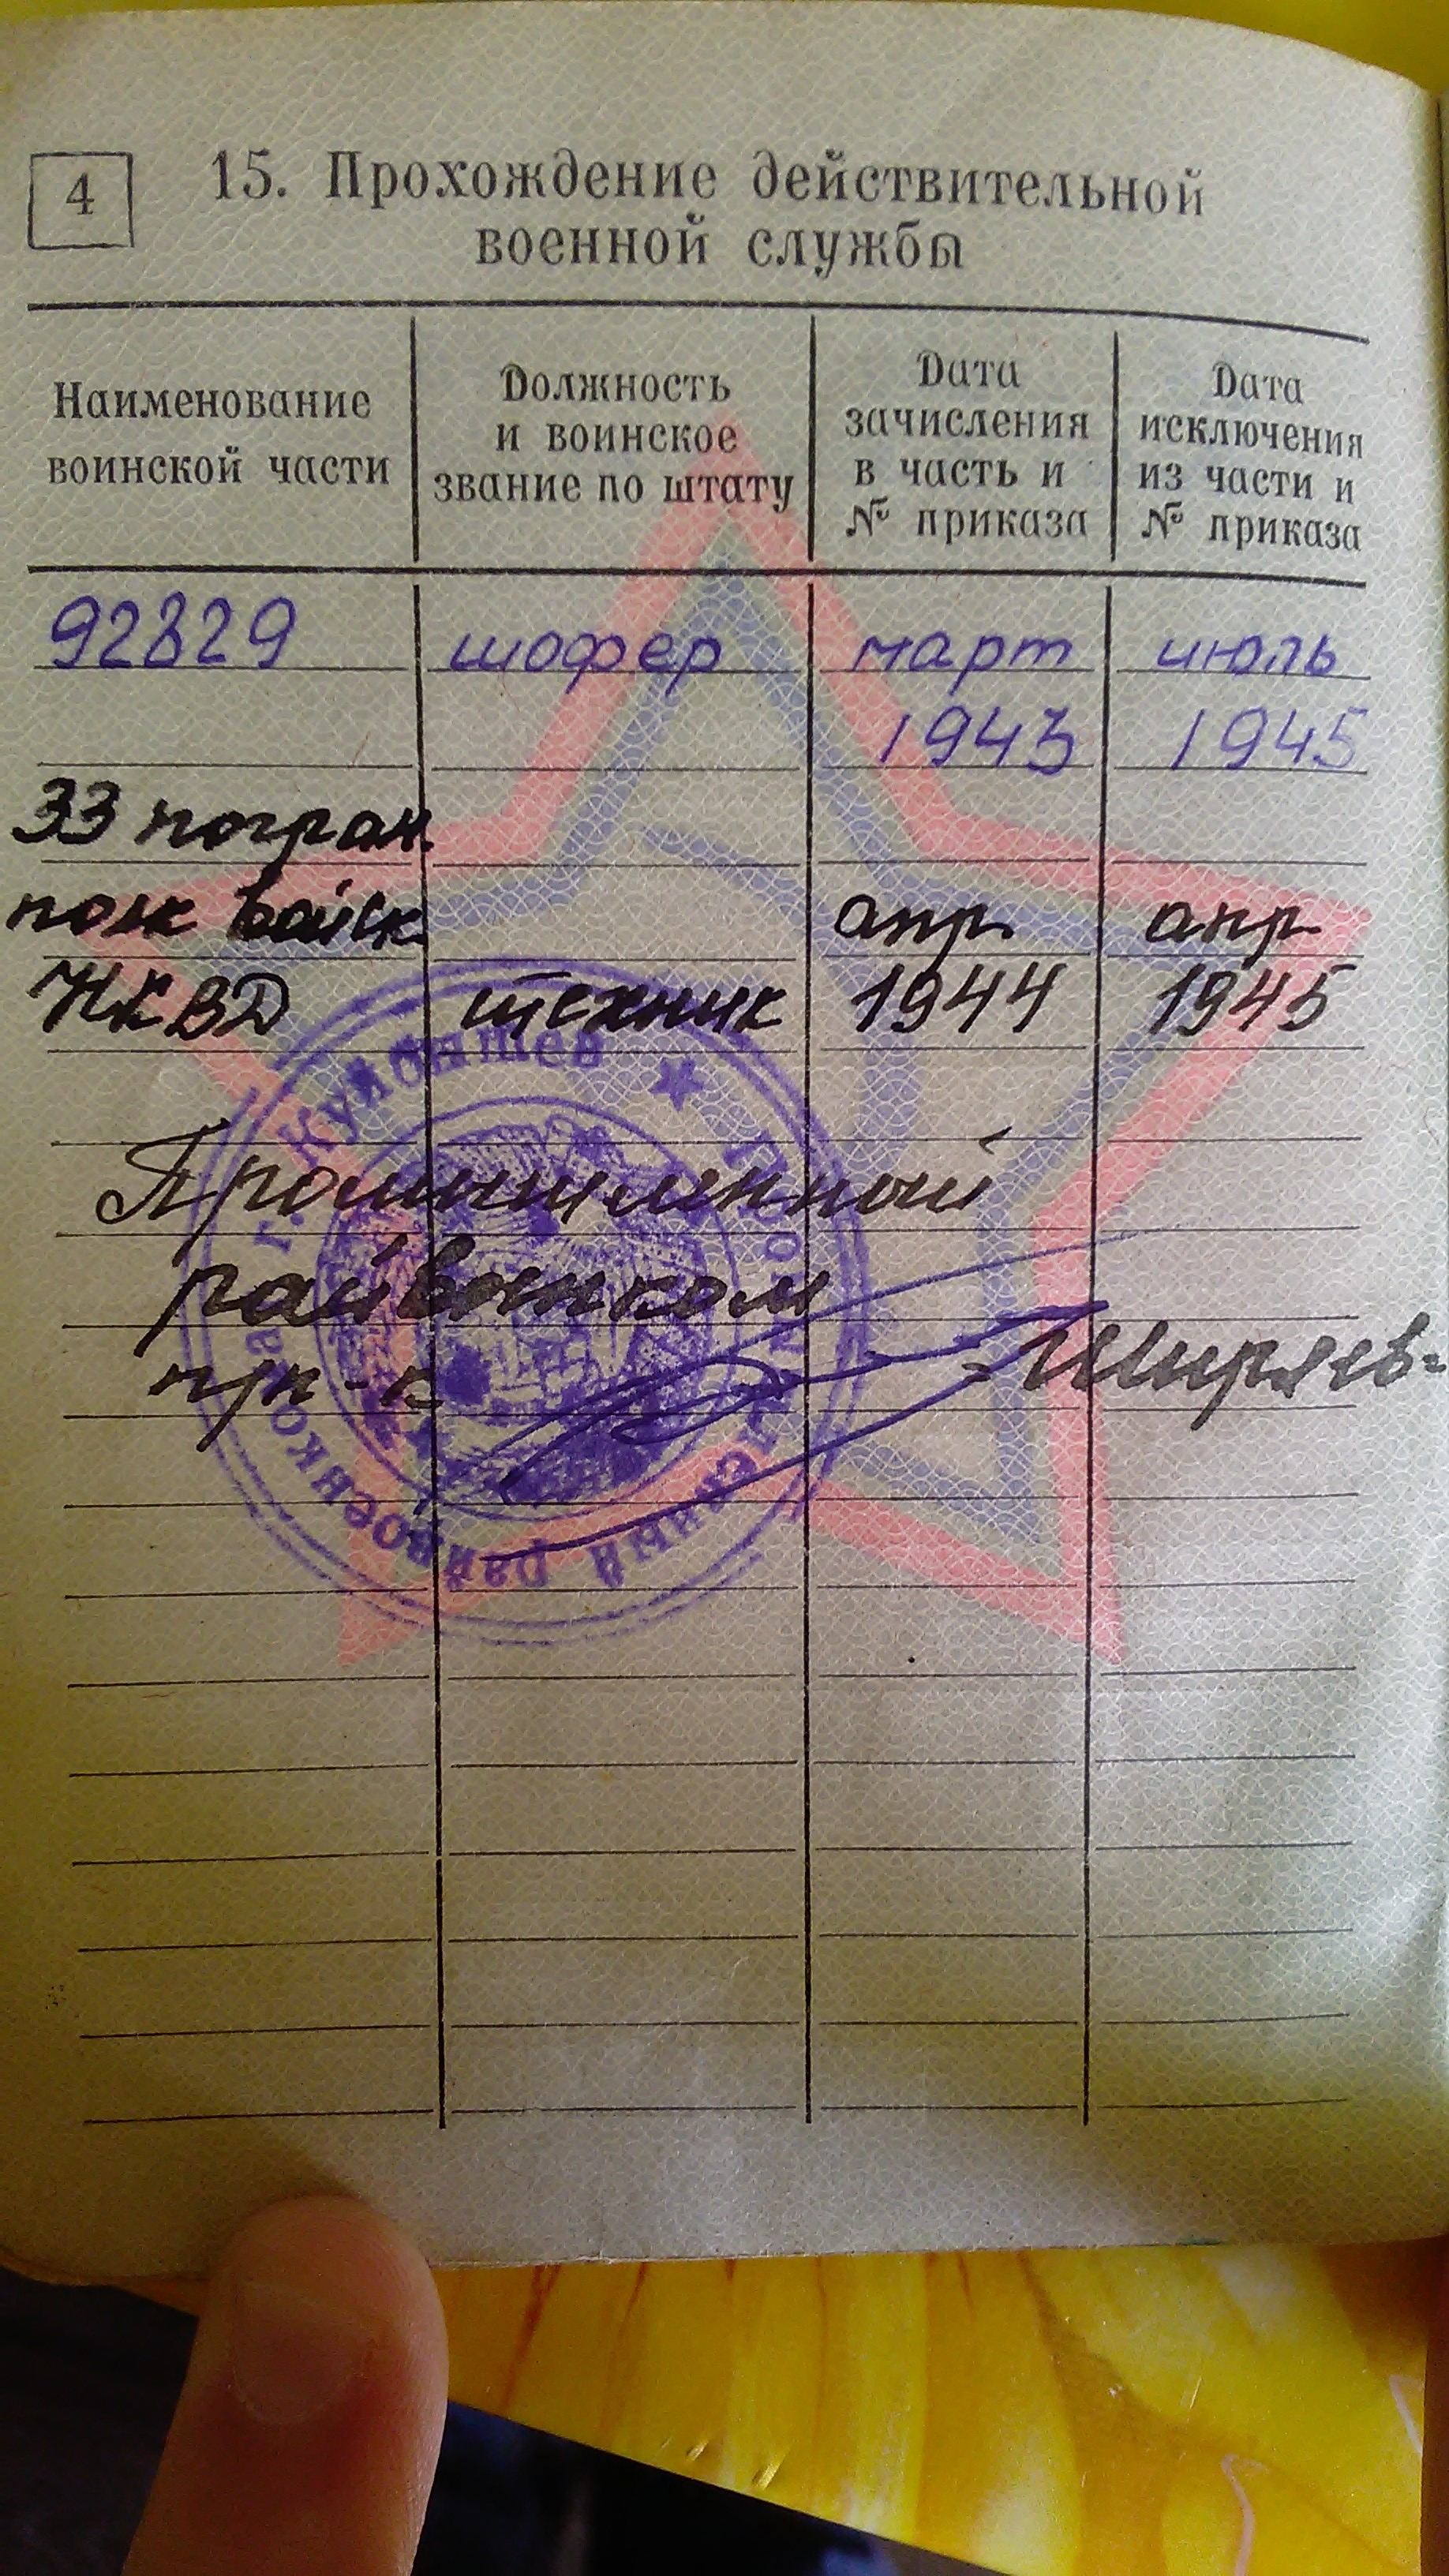 4
15. Прохождение действительной
военной службы
Наименование
воинской части
Должность
и воинское
звание по штату
Дата
зачисления
в часть и
№ приказа
Дата
исключения
из части и
№ приказа
92829 шофер март июль
1943 1945
33 погран.
полк войск апр апр
НКВД техник 1944 1945
Промышленный
райвоенком
п/п-к Ширяев
г. Куйбышев ★ Промышленный райвоенкомат